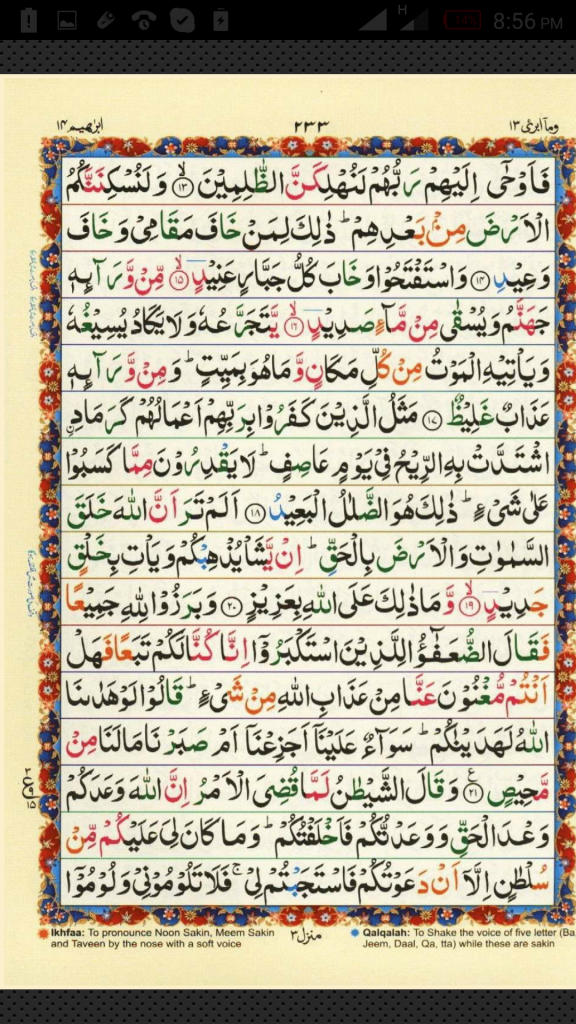 14%
8:56 PM
H
وما ابرئ ١٣
٢٣٣
ابرٰهيم ١٤
فَاَوْحٰۤى اِلَيْهِمْ رَبُّهُمْ لَنُهْلِكَنَّ الظّٰلِمِيْنَ ۙ‏﴿۱۳﴾ وَلَنُسْكِنَنَّكُمُ
الْاَرْضَ مِنْۢ بَعْدِهِمْ‌ؕ ذٰلِكَ لِمَنْ خَافَ مَقَامِىْ وَخَافَ
وَعِيْدِ‏ ﴿۱۴﴾ وَاسْتَفْتَحُوْا وَخَابَ كُلُّ جَبَّارٍ عَنِيْدٍۙ‏ ﴿۱۵﴾ مِّنْ وَّرَآئِهٖ
جَهَنَّمُ وَيُسْقٰى مِنْ مَّآءٍ صَدِيْدٍۙ‏ ﴿۱۶﴾ يَّتَجَرَّعُهٗ وَلَا يَكَادُ يُسِيْغُهٗ
وَيَاْتِيْهِ الْمَوْتُ مِنْ كُلِّ مَكَانٍ وَّمَا هُوَ بِمَيِّتٍ‌ؕ وَمِنْ وَّرَآئِهٖ
عَذَابٌ غَلِيْظٌ‏ ﴿۱۷﴾ مَثَلُ الَّذِيْنَ كَفَرُوْا بِرَبِّهِمْ اَعْمَالُهُمْ كَرَمَادٍ
اۨشْتَدَّتْ بِهِ الرِّيْحُ فِىْ يَوْمٍ عَاصِفٍ‌ؕ لَا يَقْدِرُوْنَ مِمَّا كَسَبُوْا
عَلٰى شَىْءٍ‌ؕ ذٰلِكَ هُوَ الضَّلٰلُ الْبَعِيْدُ‏ ﴿۱۸﴾ اَلَمْ تَرَ اَنَّ اللّٰهَ خَلَقَ
السَّمٰوٰتِ وَالْاَرْضَ بِالْحَقِّ‌ؕ اِنْ يَّشَاْ يُذْهِبْكُمْ وَيَاْتِ بِخَلْقٍ
جَدِيْدٍۙ‏ ﴿۱۹﴾ وَّمَا ذٰلِكَ عَلَى اللّٰهِ بِعَزِيْزٍ‏ ﴿۲۰﴾ وَبَرَزُوْا لِلّٰهِ جَمِيْعًا
فَقَالَ الضُّعَفٰٓؤُا لِلَّذِيْنَ اسْتَكْبَرُوْۤا اِنَّا كُنَّا لَكُمْ تَبَعًا فَهَلْ
اَنْتُمْ مُّغْنُوْنَ عَنَّا مِنْ عَذَابِ اللّٰهِ مِنْ شَىْءٍ‌ؕ قَالُوْا لَوْ هَدٰٮنَا
اللّٰهُ لَهَدَيْنٰكُمْ‌ؕ سَوَآءٌ عَلَيْنَاۤ اَجَزِعْنَاۤ اَمْ صَبَرْنَا مَا لَنَا مِنْ
مَّحِيْصٍ‏ ﴿۲۱﴾ وَقَالَ الشَّيْطٰنُ لَمَّا قُضِىَ الْاَمْرُ اِنَّ اللّٰهَ وَعَدَكُمْ
وَعْدَ الْحَقِّ وَوَعَدْتُّكُمْ فَاَخْلَفْتُكُمْ‌ؕ وَمَا كَانَ لِىَ عَلَيْكُمْ مِّنْ
سُلْطٰنٍ اِلَّاۤ اَنْ دَعَوْتُكُمْ فَاسْتَجَبْتُمْ لِىْ‌ۚ فَلَا تَلُوْمُوْنِىْ وَلُوْمُوْۤا
Ikhfaa: To pronounce Noon Sakin, Meem Sakin
and Taveen by the nose with a soft voice
منزل ٣
Qalqalah: To Shake the voice of five letter (Ba
Jeem, Daal, Qa, tta) while these are sakin